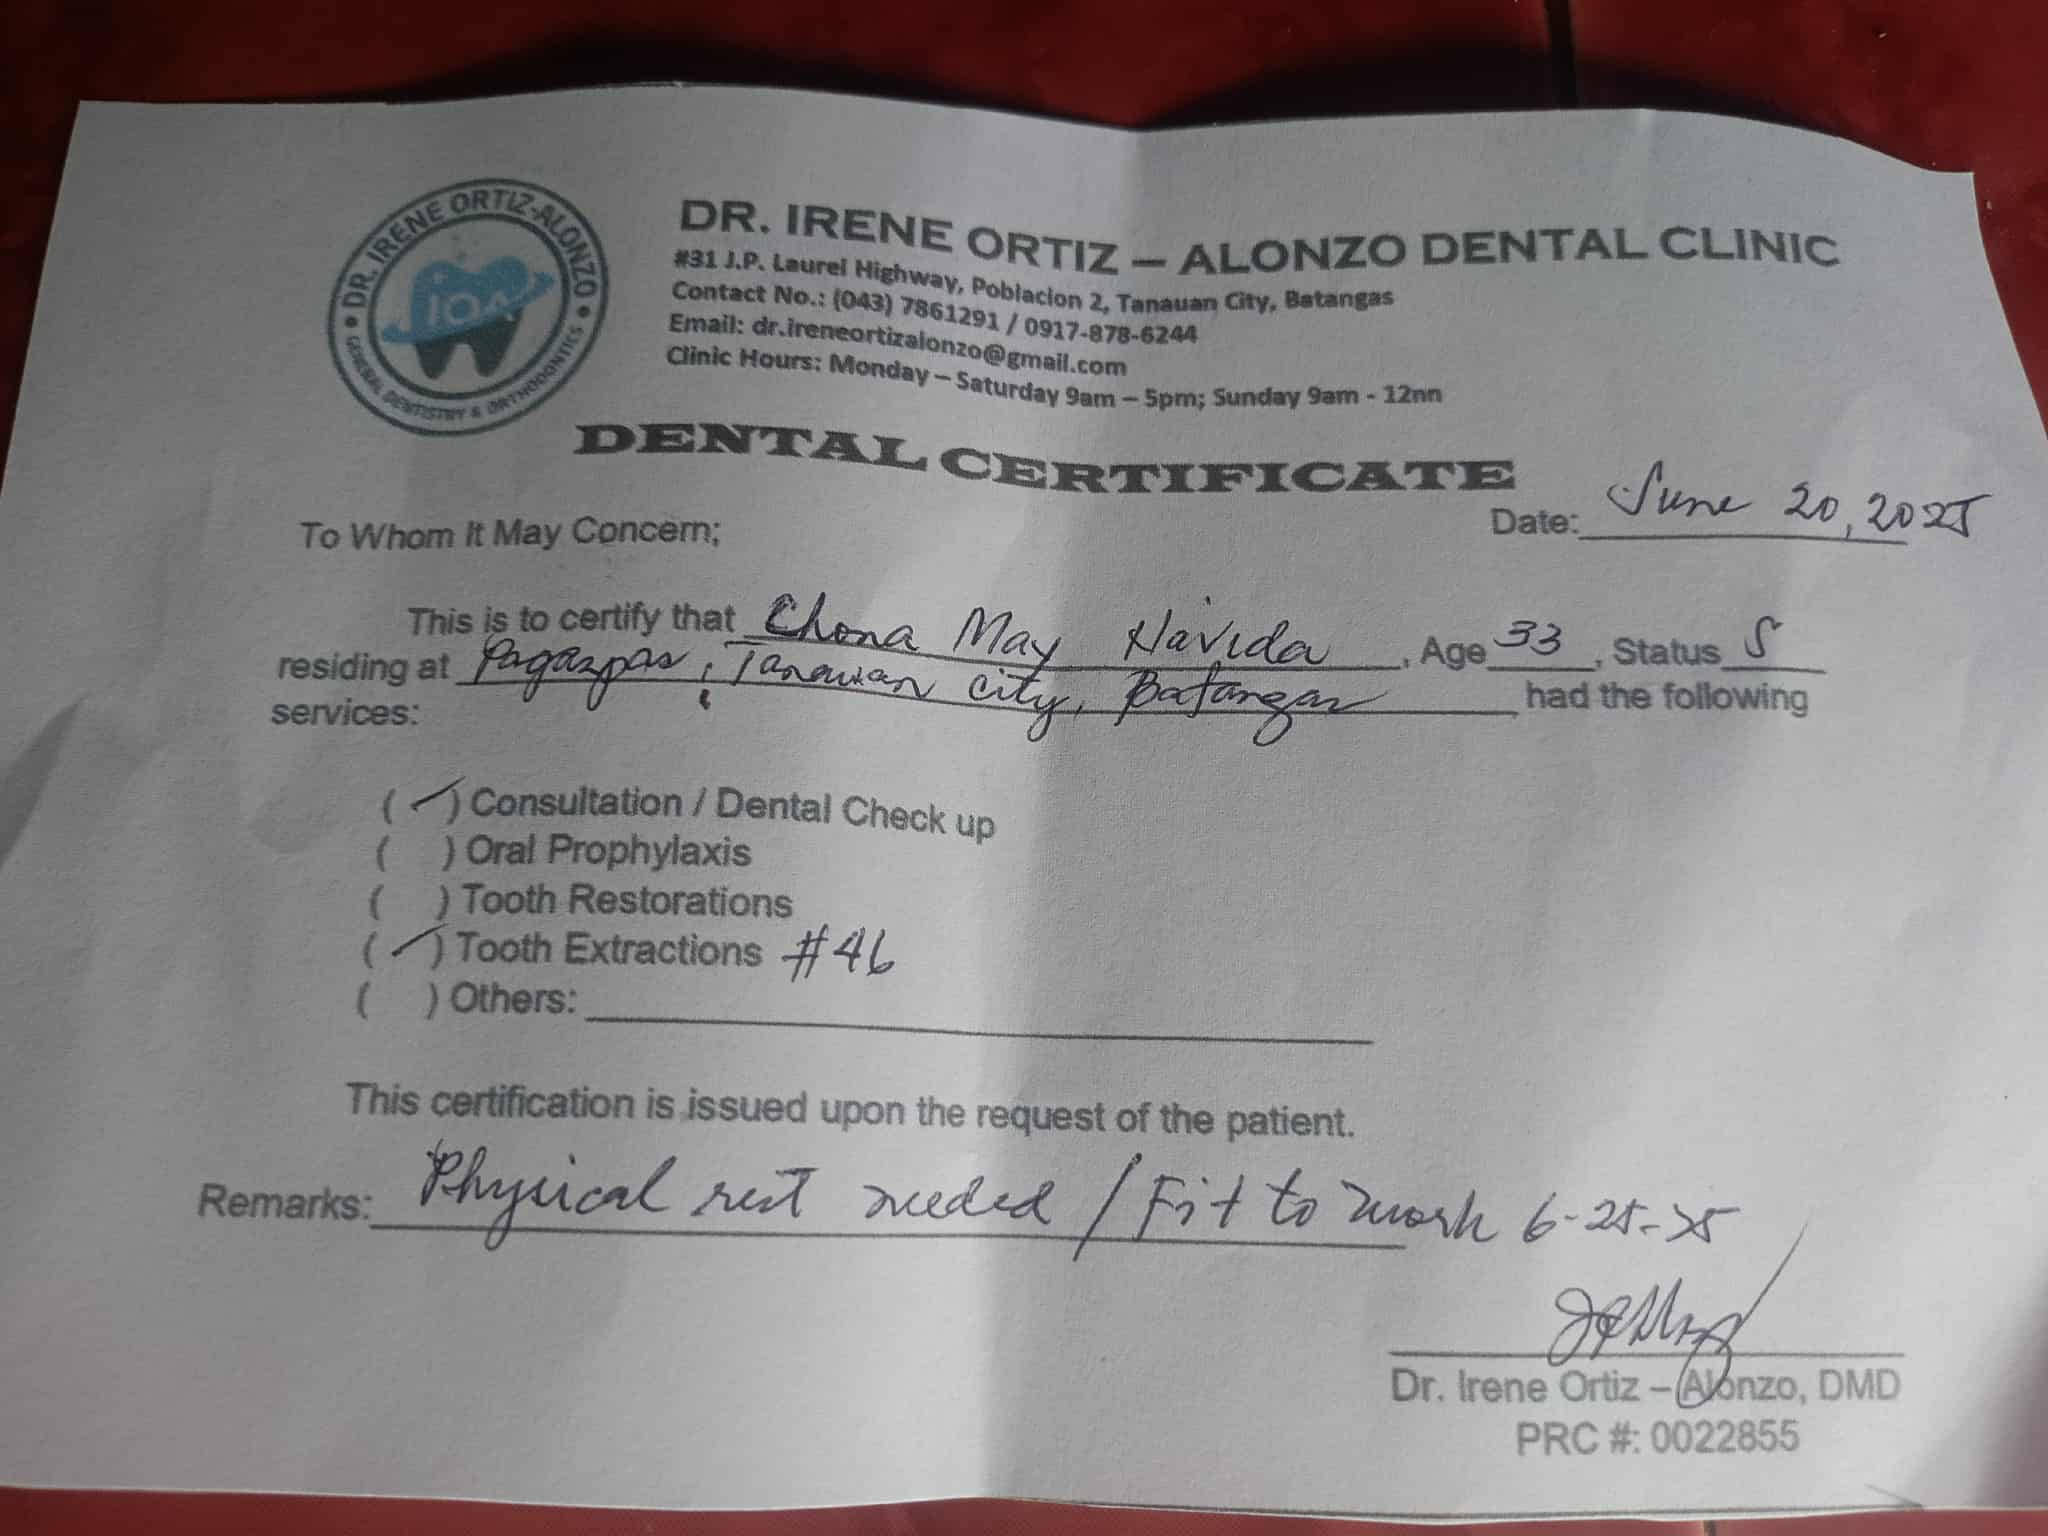 DR. IRENE ORTIZ-ALONZO
IOA
GENERAL DENTISTRY & ORTHODONTICS
DR. IRENE ORTIZ – ALONZO DENTAL CLINIC
#31 J.P. Laurel Highway, Poblacion 2, Tanauan City, Batangas
Contact No.: (043) 7861291 / 0917-878-6244
Email: dr.ireneortizalonzo@gmail.com
Clinic Hours: Monday – Saturday 9am – 5pm; Sunday 9am - 12nn
DENTAL CERTIFICATE
Date: June 20, 2025
To Whom It May Concern;
This is to certify that Chona May Navida, Age 33, Status S
residing at Pagaspas, Tanauan City, Batangas had the following
services:
(✓) Consultation / Dental Check up
( ) Oral Prophylaxis
( ) Tooth Restorations
(✓) Tooth Extractions #46
( ) Others:
This certification is issued upon the request of the patient.
Remarks: Physical rest needed / Fit to work 6-25-25
Dr. Irene Ortiz – Alonzo, DMD
PRC #: 0022855